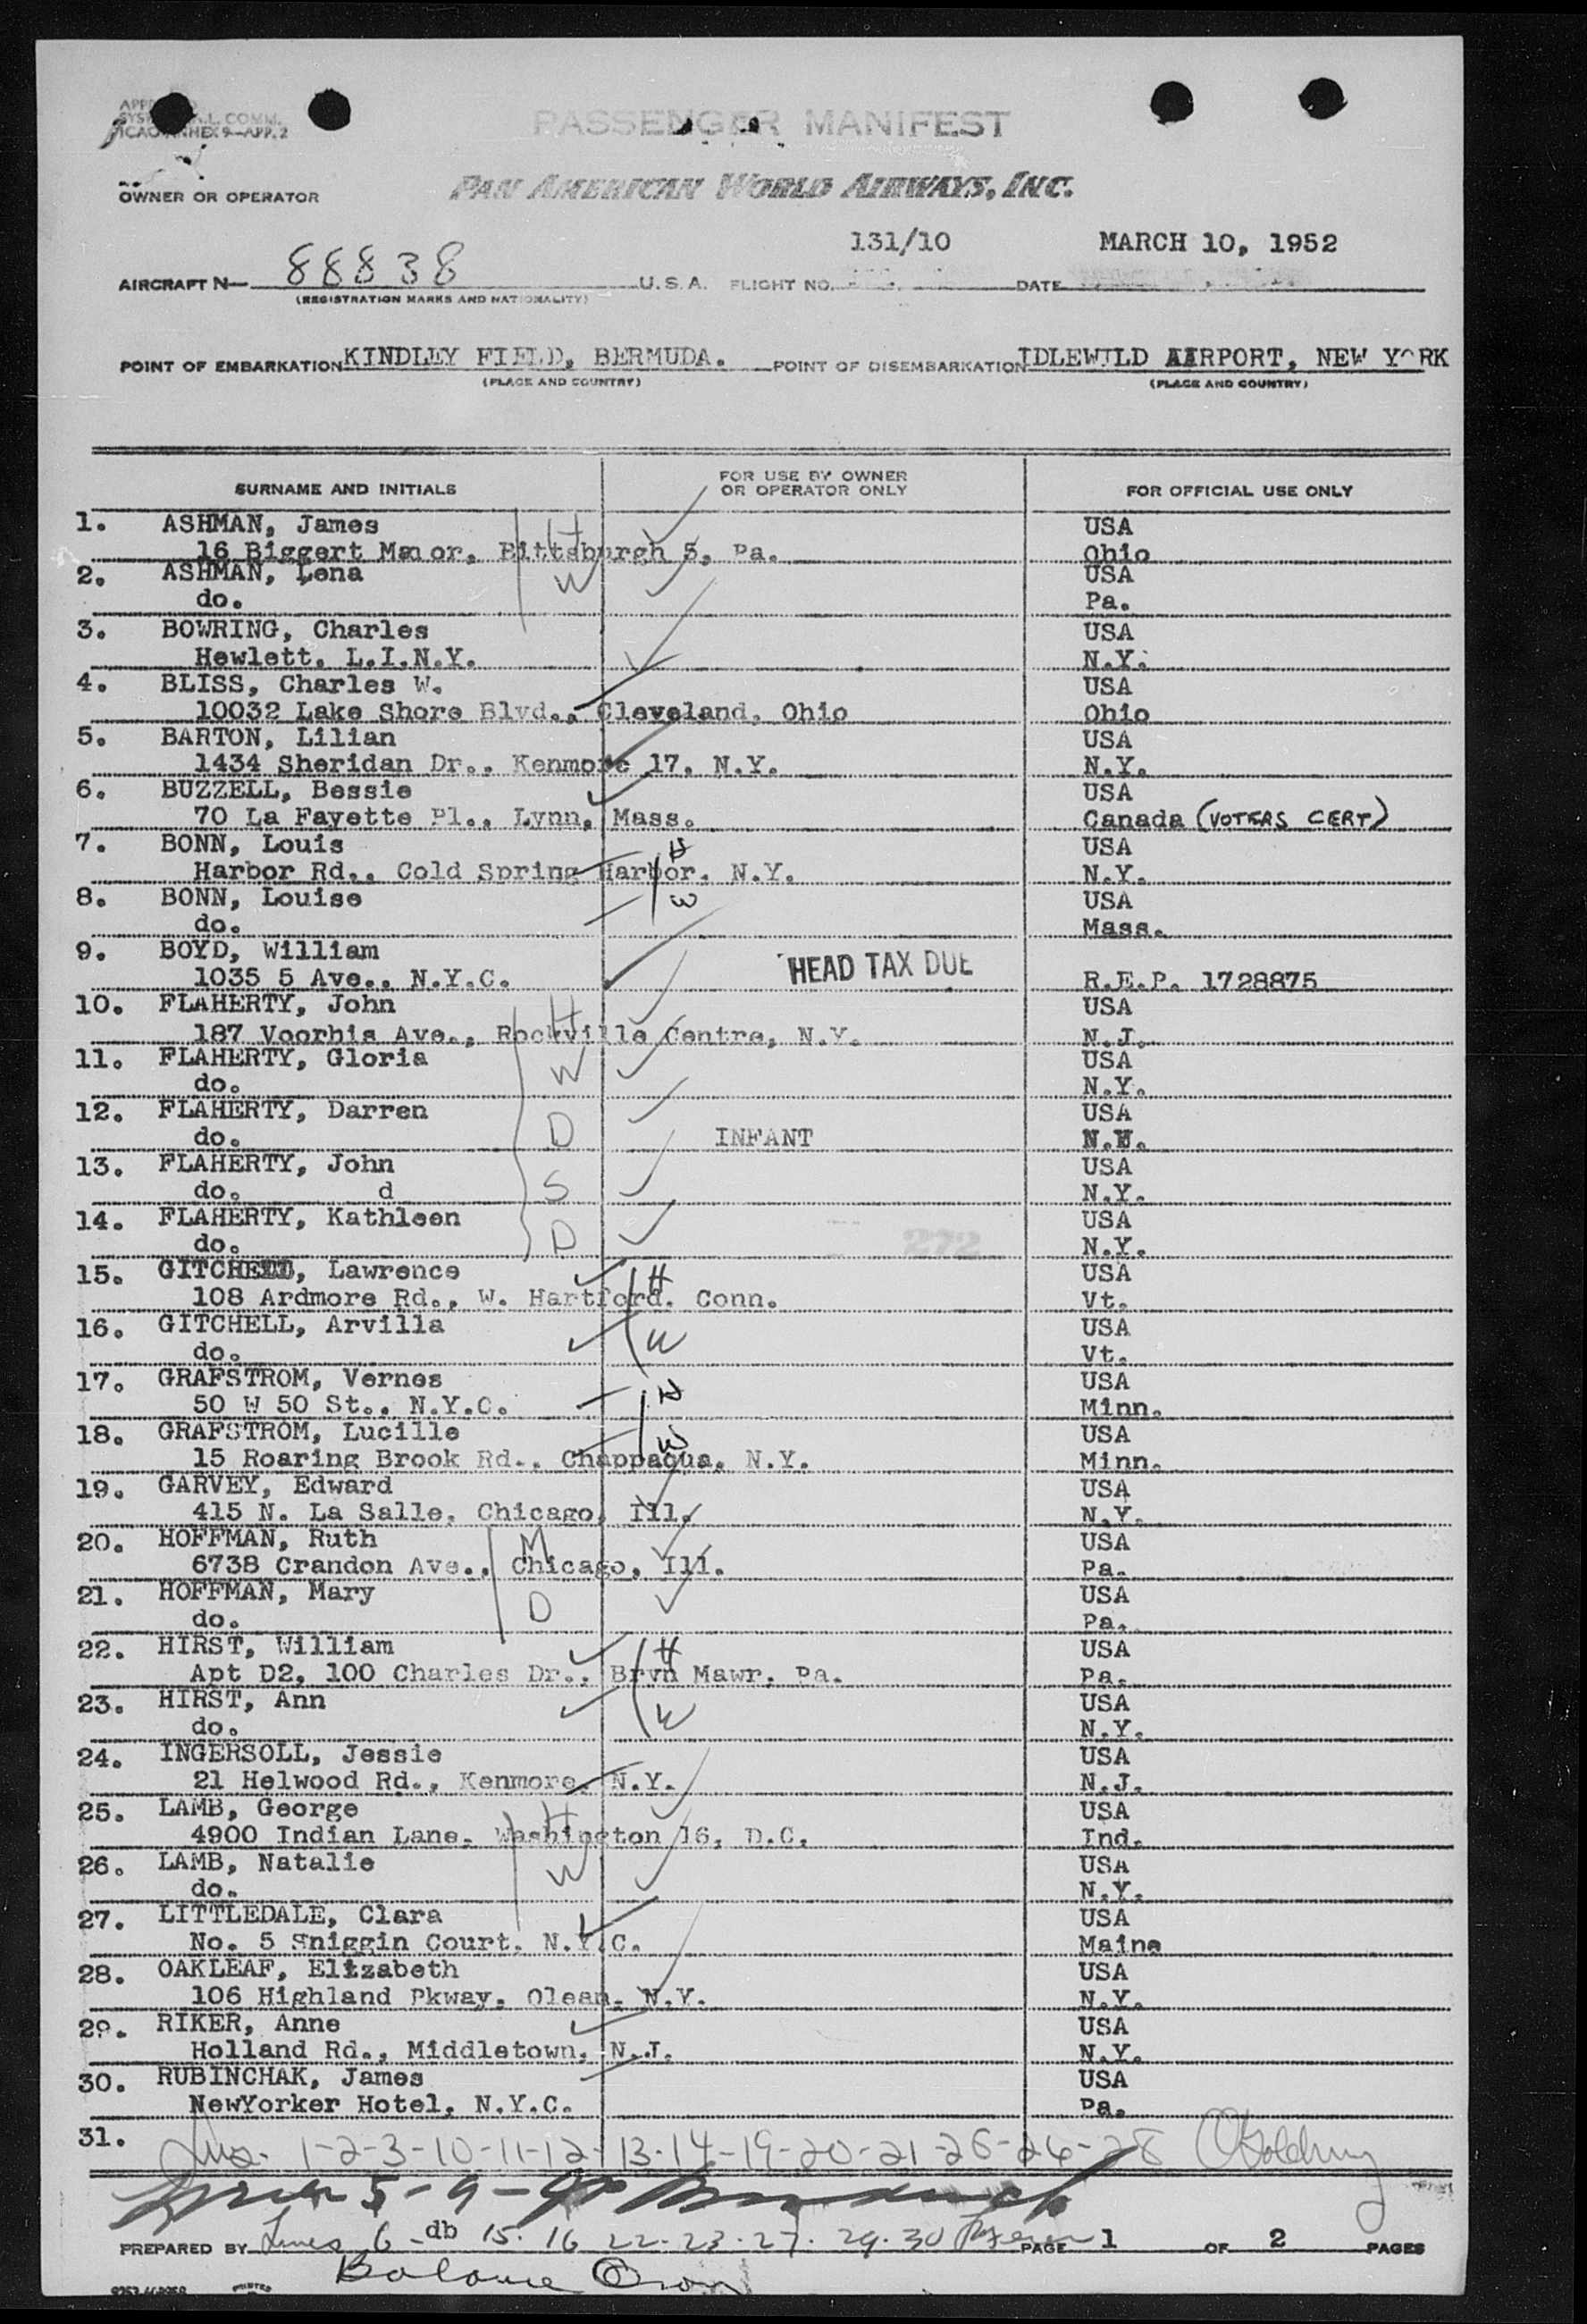 PASSENGER MANIFEST
ICAO ANNEX 9—APP. 2
OWNER OR OPERATOR PAN AMERICAN WORLD AIRWAYS, INC.
131/10 MARCH 10, 1952
AIRCRAFT N— 88838 U.S.A. FLIGHT NO. DATE
(REGISTRATION MARKS AND NATIONALITY)
POINT OF EMBARKATION KINDLEY FIELD, BERMUDA. POINT OF DISEMBARKATION IDLEWILD AIRPORT, NEW YORK
(PLACE AND COUNTRY) (PLACE AND COUNTRY)
SURNAME AND INITIALS FOR USE BY OWNER OR OPERATOR ONLY FOR OFFICIAL USE ONLY
1. ASHMAN, James H USA
16 Biggert Manor, Pittsburgh 5, Pa. Ohio
2. ASHMAN, Lena W USA
do. Pa.
3. BOWRING, Charles USA
Hewlett. L.I.N.Y. N.Y.
4. BLISS, Charles W. USA
10032 Lake Shore Blvd., Cleveland, Ohio Ohio
5. BARTON, Lilian USA
1434 Sheridan Dr., Kenmore 17, N.Y. N.Y.
6. BUZZELL, Bessie USA
70 La Fayette Pl., Lynn, Mass. Canada (VOTERS CERT)
7. BONN, Louis H USA
Harbor Rd., Cold Spring Harbor, N.Y. N.Y.
8. BONN, Louise W USA
do. Mass.
9. BOYD, William
1035 5 Ave., N.Y.C. HEAD TAX DUE R.E.P. 1728875
10. FLAHERTY, John H USA
187 Voorhis Ave., Rockville Centre, N.Y. N.J.
11. FLAHERTY, Gloria W USA
do. N.Y.
12. FLAHERTY, Darren D USA
do. INFANT
13. FLAHERTY, John S USA
do. d N.Y.
14. FLAHERTY, Kathleen D USA
do. 272 N.Y.
15. GITCHELL, Lawrence H USA
108 Ardmore Rd., W. Hartford. Conn. Vt.
16. GITCHELL, Arvilla W USA
do. Vt.
17. GRAFSTROM, Vernes H USA
50 W 50 St., N.Y.C. Minn.
18. GRAFSTROM, Lucille W USA
15 Roaring Brook Rd., Chappaqua, N.Y. Minn.
19. GARVEY, Edward USA
415 N. La Salle, Chicago, Ill. N.Y.
20. HOFFMAN, Ruth M USA
6738 Crandon Ave., Chicago, Ill. Pa.
21. HOFFMAN, Mary D USA
do. Pa.
22. HIRST, William H USA
Apt D2, 100 Charles Dr., Bryn Mawr, Pa. Pa.
23. HIRST, Ann W USA
do. N.Y.
24. INGERSOLL, Jessie USA
21 Helwood Rd., Kenmore, N.Y. N.J.
25. LAMB, George H USA
4900 Indian Lane, Washington 16, D.C. Ind.
26. LAMB, Natalie W USA
do. N.Y.
27. LITTLEDALE, Clara USA
No. 5 Sniggin Court, N.Y.C. Maine
28. OAKLEAF, Elizabeth USA
106 Highland Pkway, Olean, N.Y. N.Y.
29. RIKER, Anne USA
Holland Rd., Middletown, N.J. N.Y.
30. RUBINCHAK, James USA
NewYorker Hotel, N.Y.C. Pa.
31. 1-2-3-10-11-12-13-14-19-20-21-25-26-28
5-9-
PREPARED BY Lines 6 db 15-16 22-23-27-29-30 PAGE 1 OF 2 PAGES
Balance